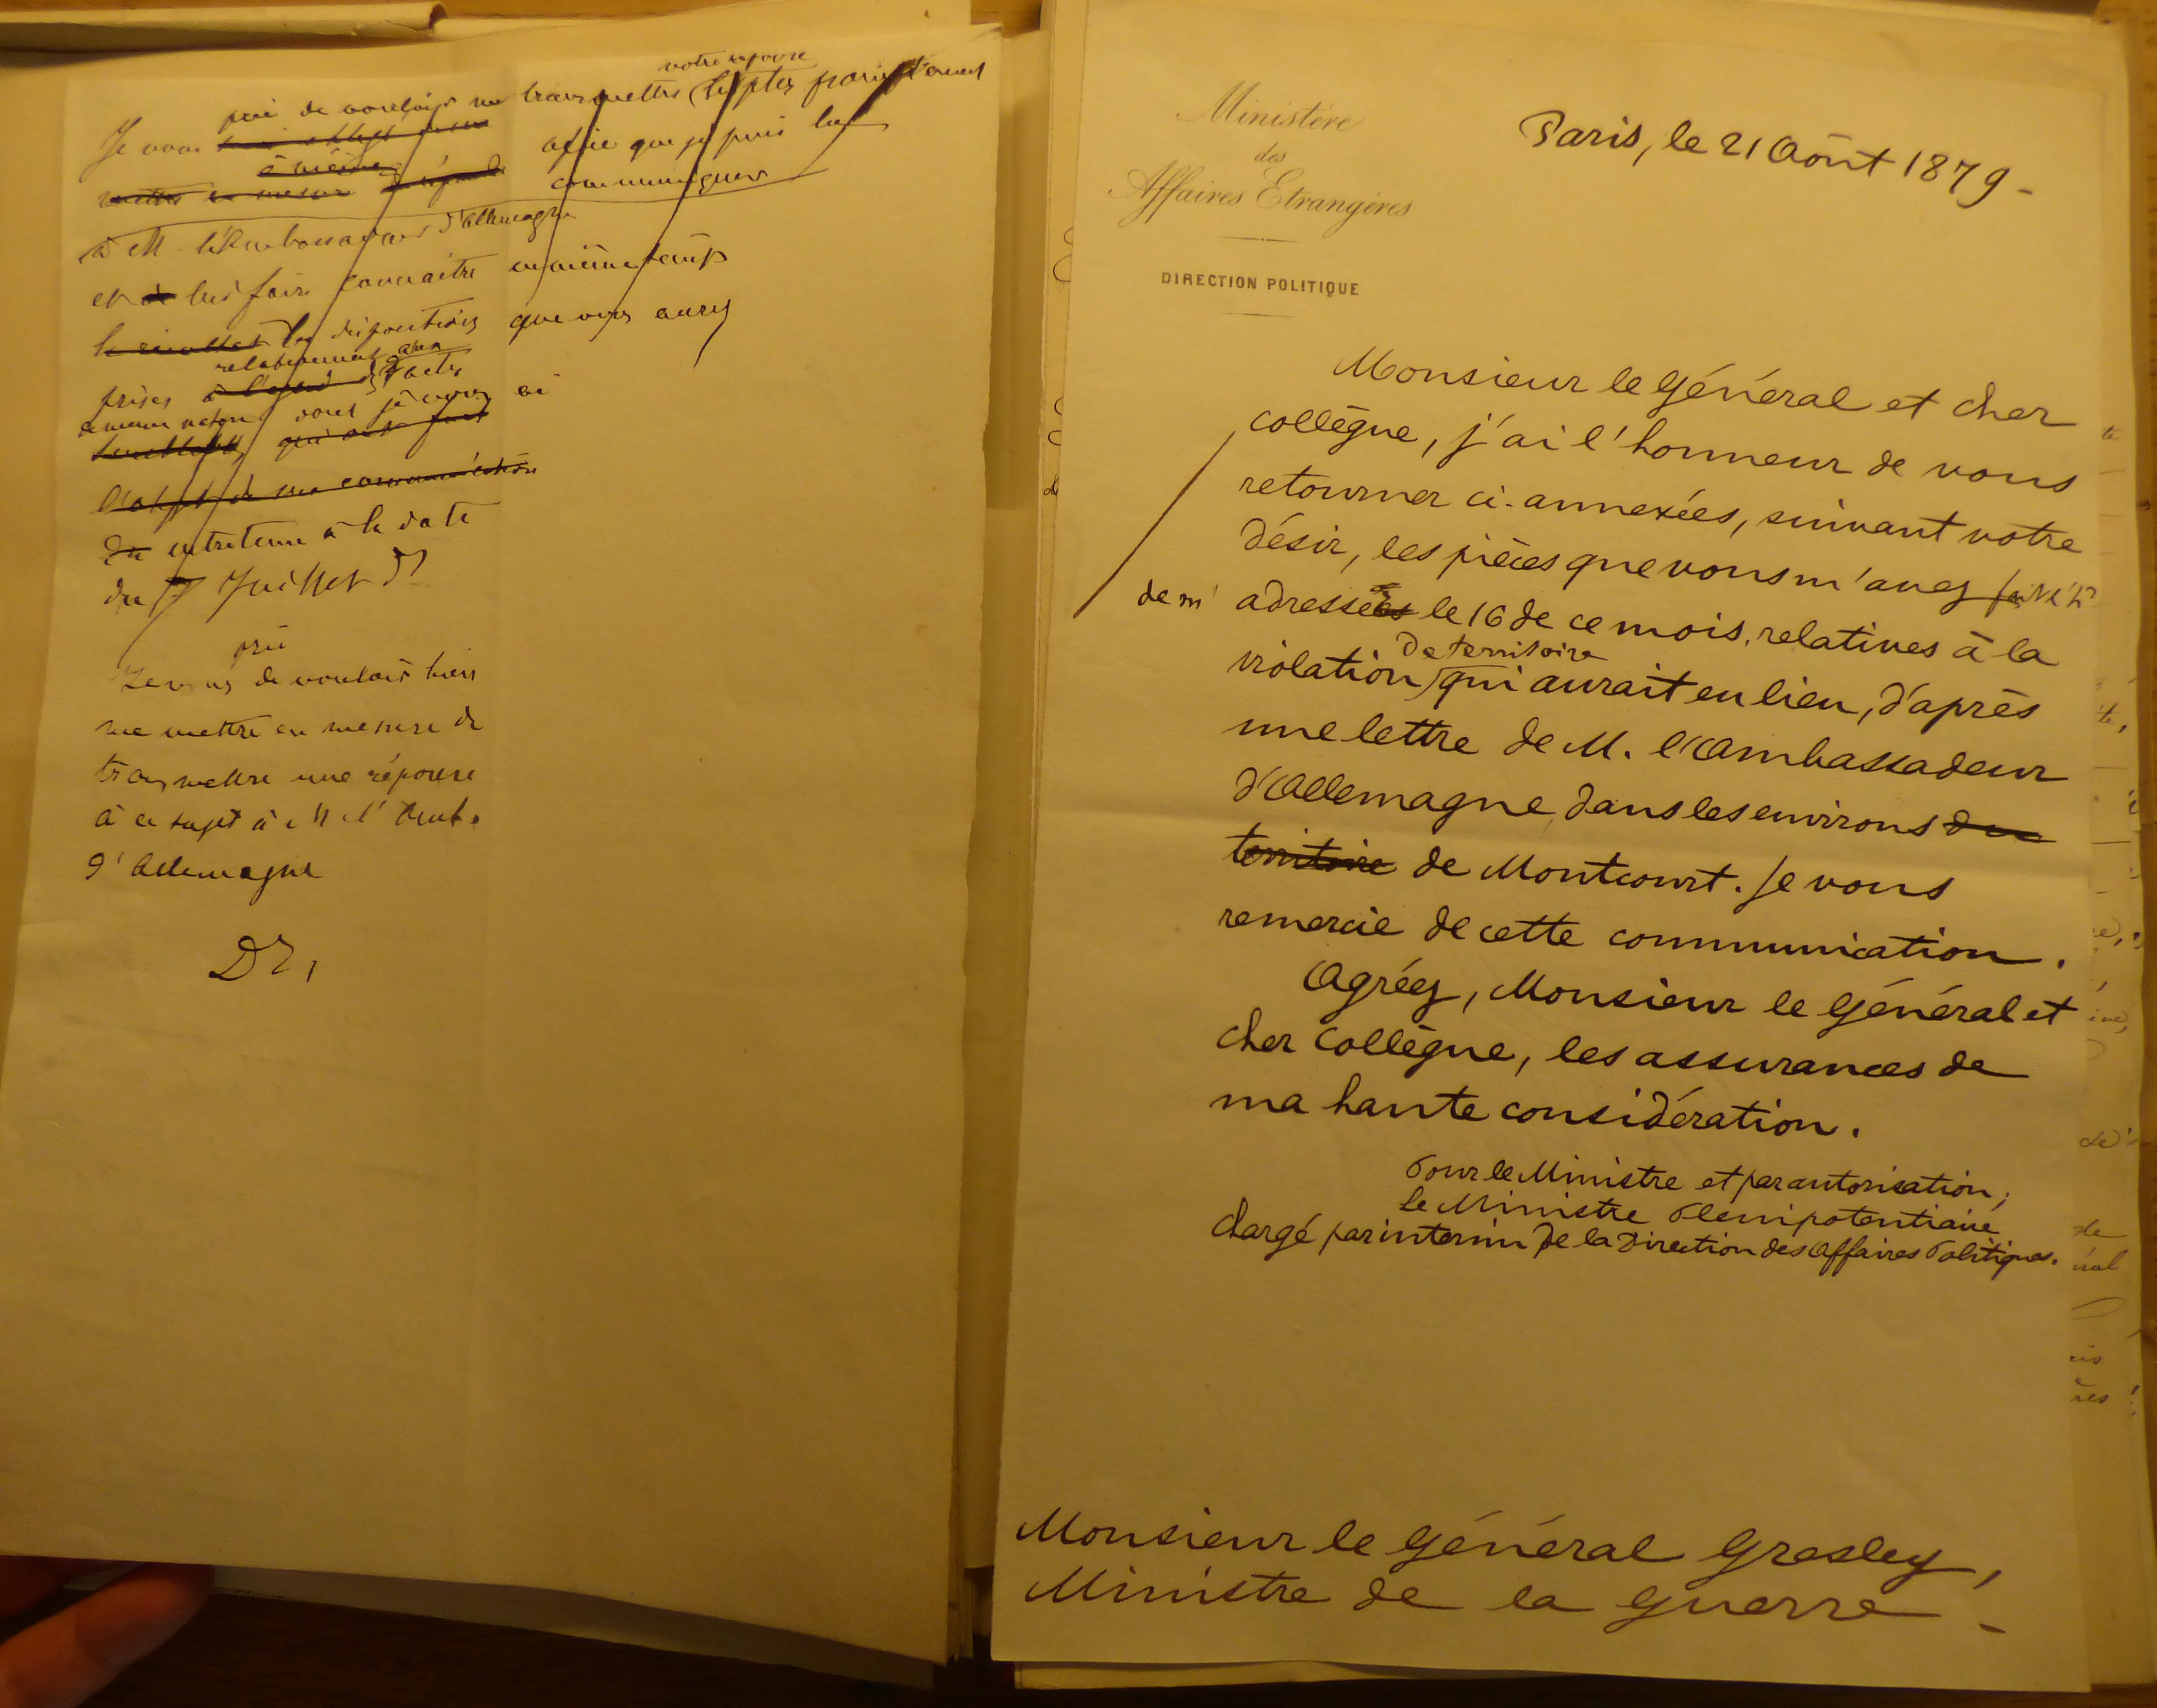 votre réponse
prie de vouloir me transmettre le plus
Je vous afin que je puis lui
à même
mettre en mesure de répondre communiquer
à M. l'Ambassadeur d'Allemagne
et de lui faire connaître en même temps
le résultat les dispositions que vous aurez
relativement aux
prises à l'égard des actes
vous je vous ai
qui ont fait
l'objet de ma communication
du entretenu à la date
du 7 Juillet dr
prie
Je vous de vouloir bien
me mettre en mesure de
transmettre une réponse
à ce sujet à M. l'Amb.
d'Allemagne
Ministère
des
Affaires Etrangères
DIRECTION POLITIQUE
Paris, le 21 Août 1879 -
Monsieur le Général et cher
collègue, j'ai l'honneur de vous
retourner ci-annexées, suivant votre
désir, les pièces que vous m'avez fait l'hr
de m' adressées le 16 de ce mois, relatives à la
de territoire
violation qui aurait eu lieu, d'après
une lettre de M. l'Ambassadeur
d'Allemagne, dans les environs du
territoire de Montcourt. Je vous
remercie de cette communication.
Agréez, Monsieur le Général et
cher collègue, les assurances de
ma haute considération.
Pour le Ministre et par autorisation,
Le Ministre Plénipotentiaire
chargé par interim de la Direction des Affaires Politiques.
Monsieur le Général Gresley,
Ministre de la Guerre -